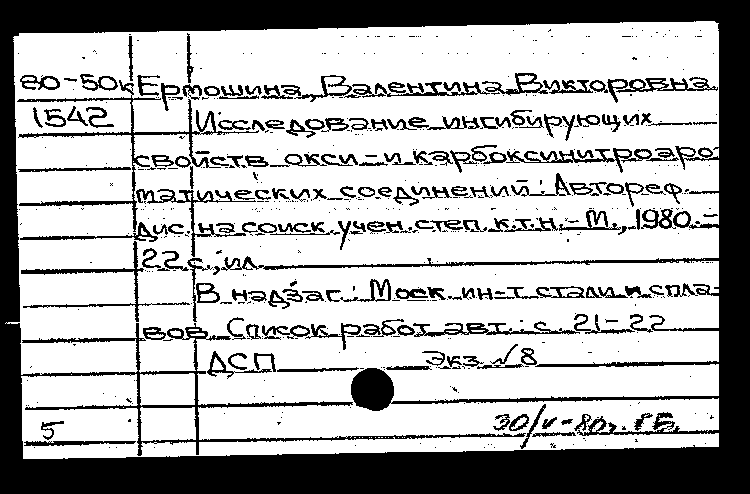 80-50к Ермошина, Валентина Викторовна.
1542 Исследование ингибирующих
свойств окси- и карбоксинитроаро-
матических соединений: Автореф.
дис. на соиск. учен. степ. к.т.н. - М., 1980. -
22 с., ил.
В надзаг.: Моск. ин-т стали и спла-
вов. Список работ авт.: с. 21-22
ДСП Экз. №8
5 30/V-80г. Г.Б.